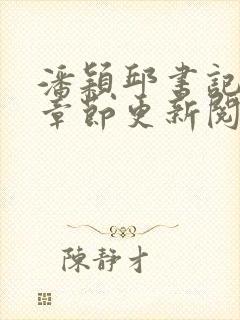 潘穎邱書記
章節更新閱
陳靜才